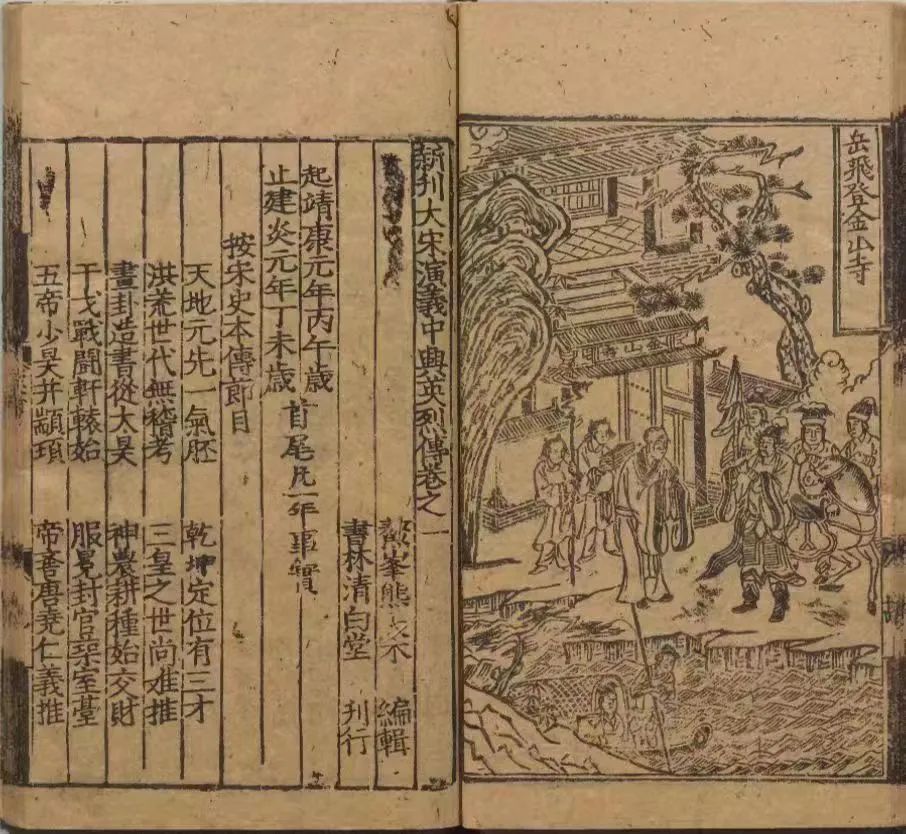 岳飛登金山寺
金山寺
新刊大宋演義中興英列傳卷之一
鰲峯熊大木 編輯
書林清白堂 刊行
起靖康元年丙午歲
止建炎元年丁未歲
首尾凡一年事實
按宋史本傳節目
天地元先一氣胚 乾坤定位有三才
洪荒世代無稽考 三皇之世尚难推
畫卦造書從太昊 神農耕種始交財
干戈戰鬪軒轅始 服冕封官琹室臺
五帝少昊并顓頊 帝嚳唐堯仁義推